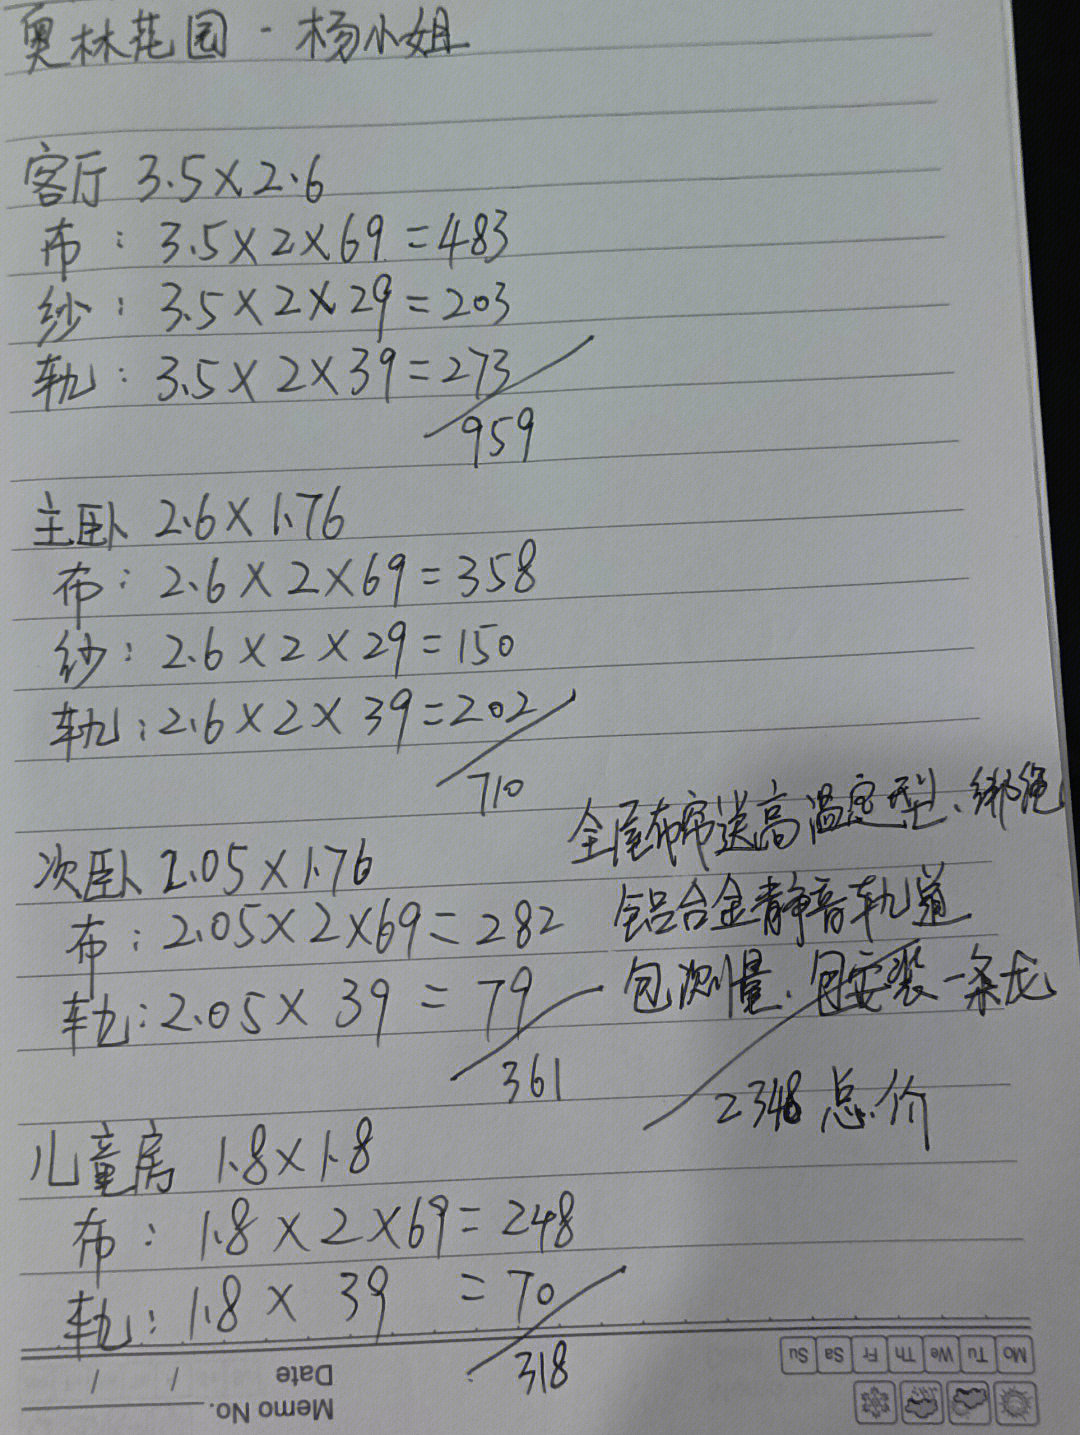 奥林花园 - 杨小姐
客厅 3.5×2.6
布: 3.5×2×69=483
纱: 3.5×2×29=203
轨: 3.5×2×39=273
959
主卧 2.6×1.76
布: 2.6×2×69=358
纱: 2.6×2×29=150
轨: 2.6×2×39=202
710
次卧 2.05×1.76
布: 2.05×2×69=282
轨: 2.05×39=79
361
儿童房 1.8×1.8
布: 1.8×2×69=248
轨: 1.8×39=70
318
全屋布帘送高温定型、绑绳
铝合金静音轨道
包测量、包安装一条龙
2348 总价
Memo No.
Date / /
Mo Tu We Th Fr Sa Su